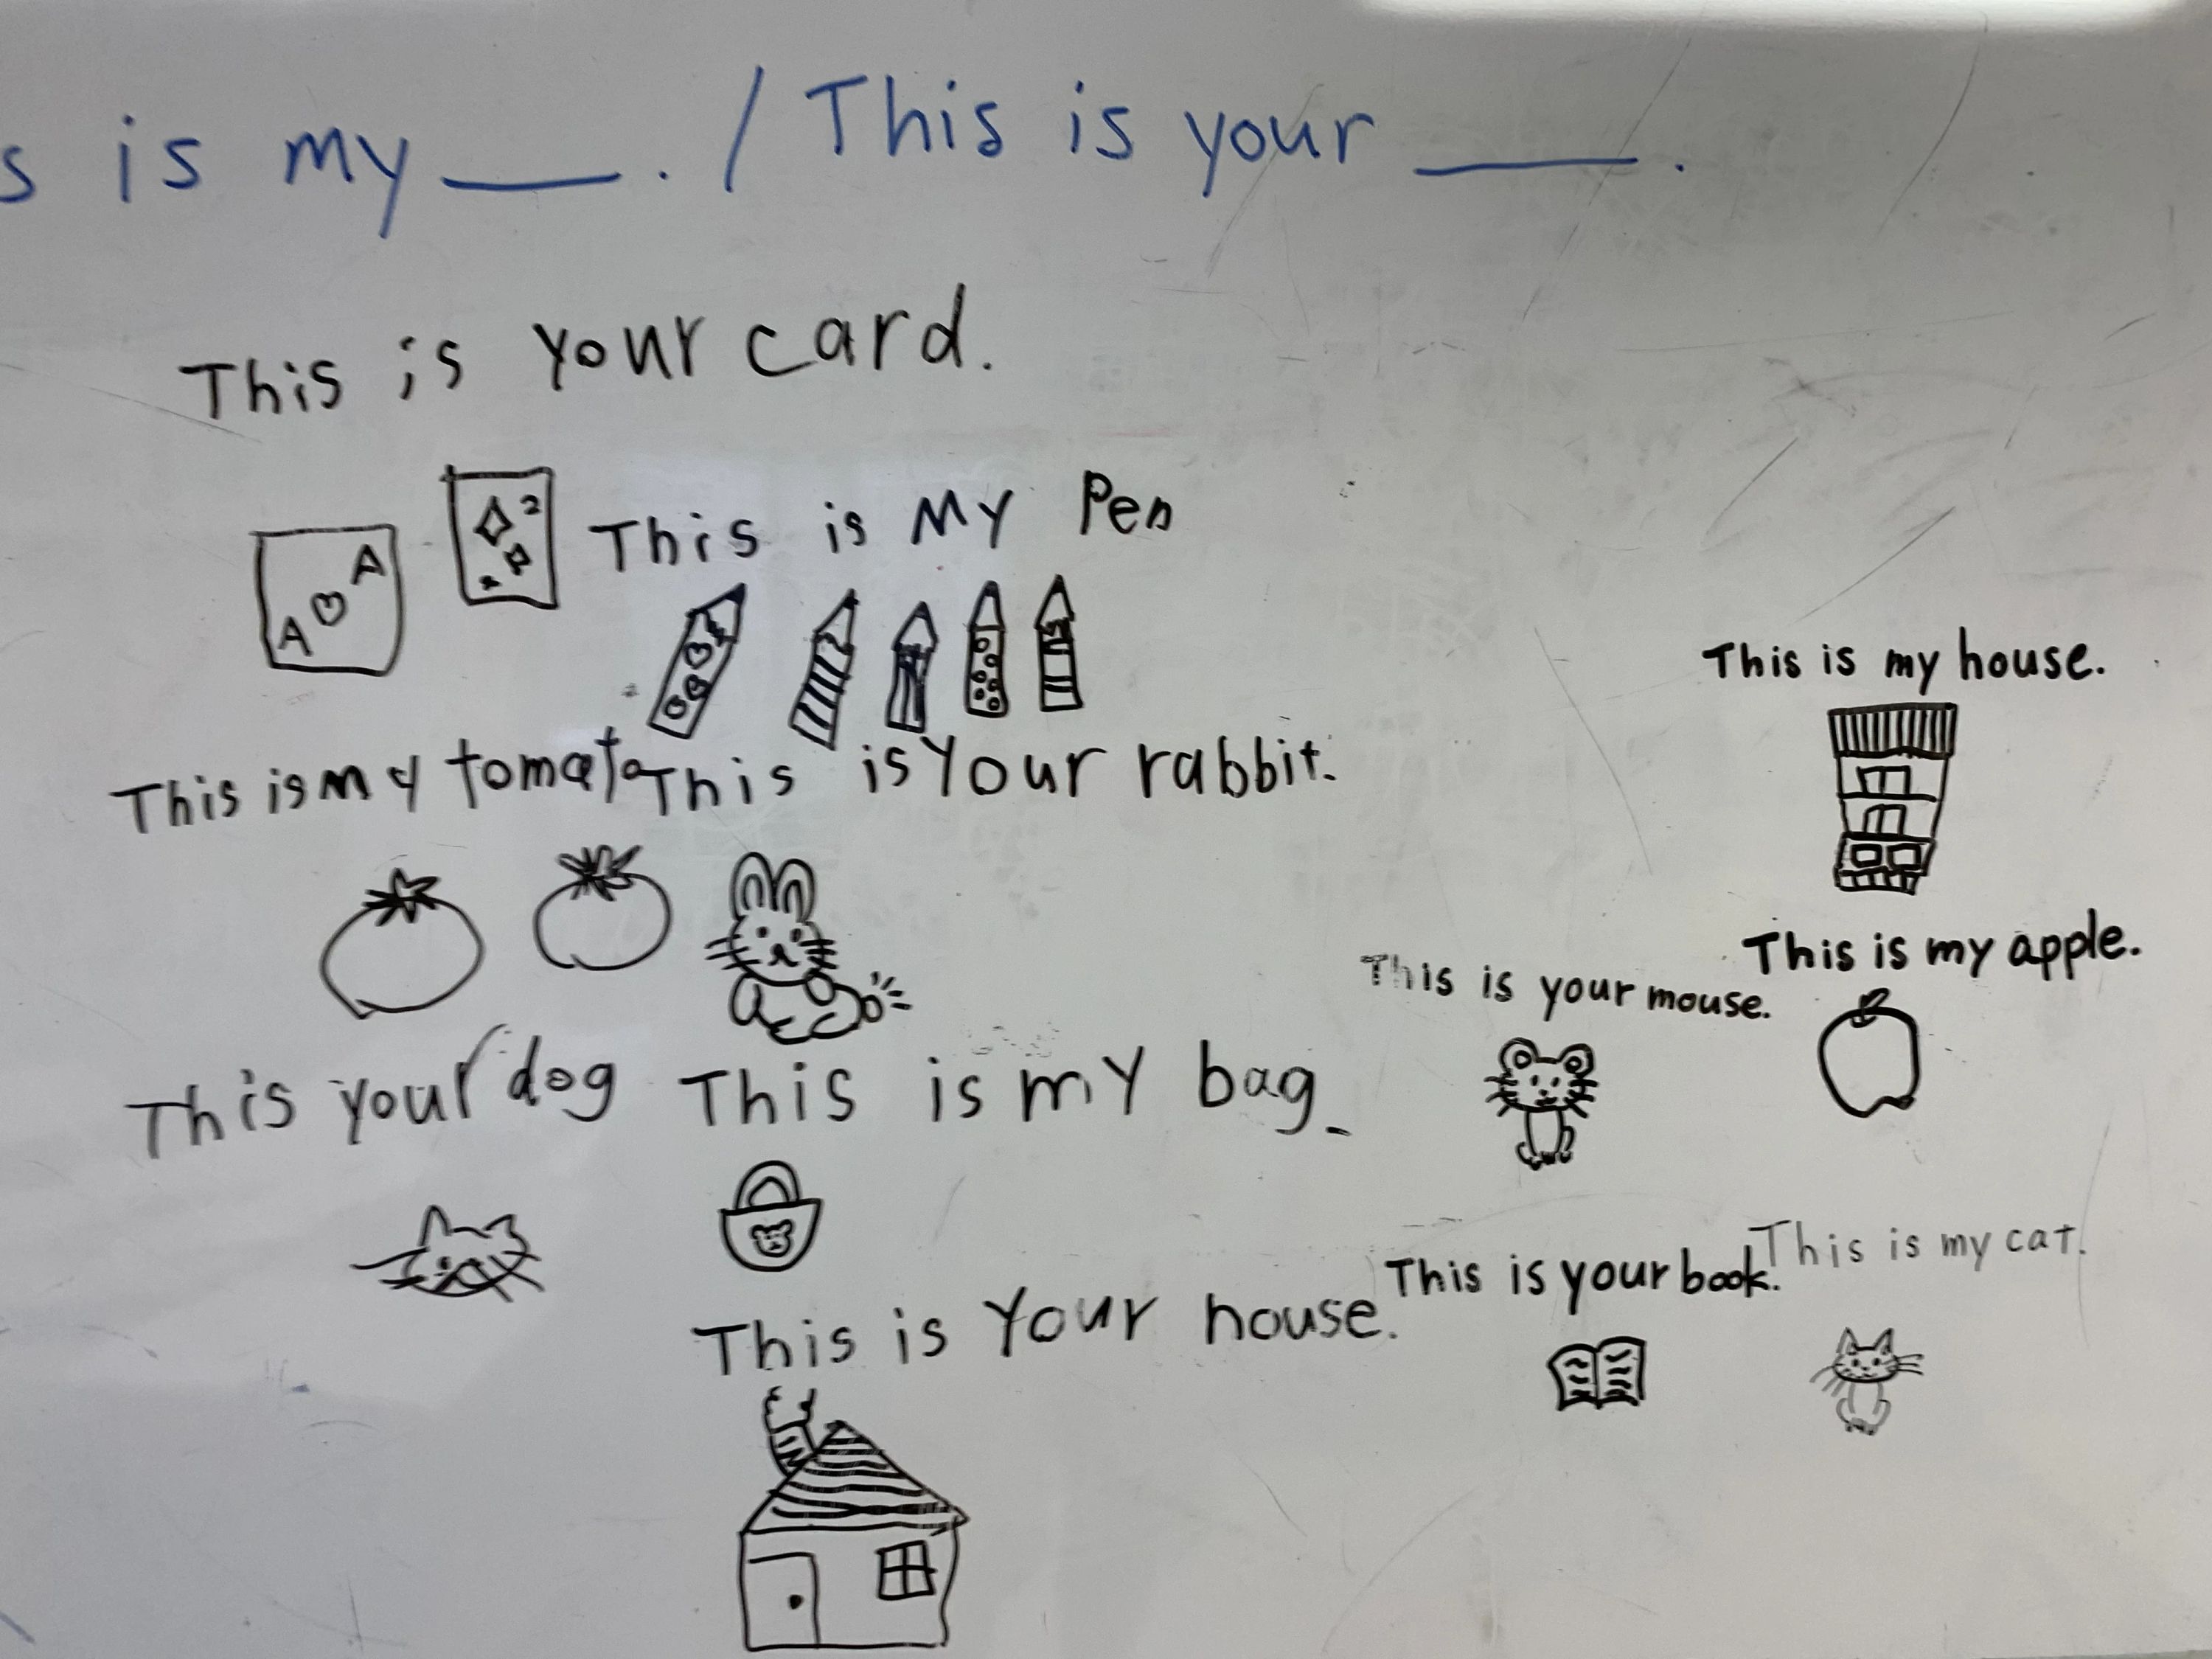 s is my ___. / This is your ___.
This is your card.
A
A
2
This is My Pen
This is my tomato
This is Your rabbit.
This is my house.
This is my apple.
This is your mouse.
This your dog
This is mY bag.
This is your book.
This is my cat.
This is Your house.